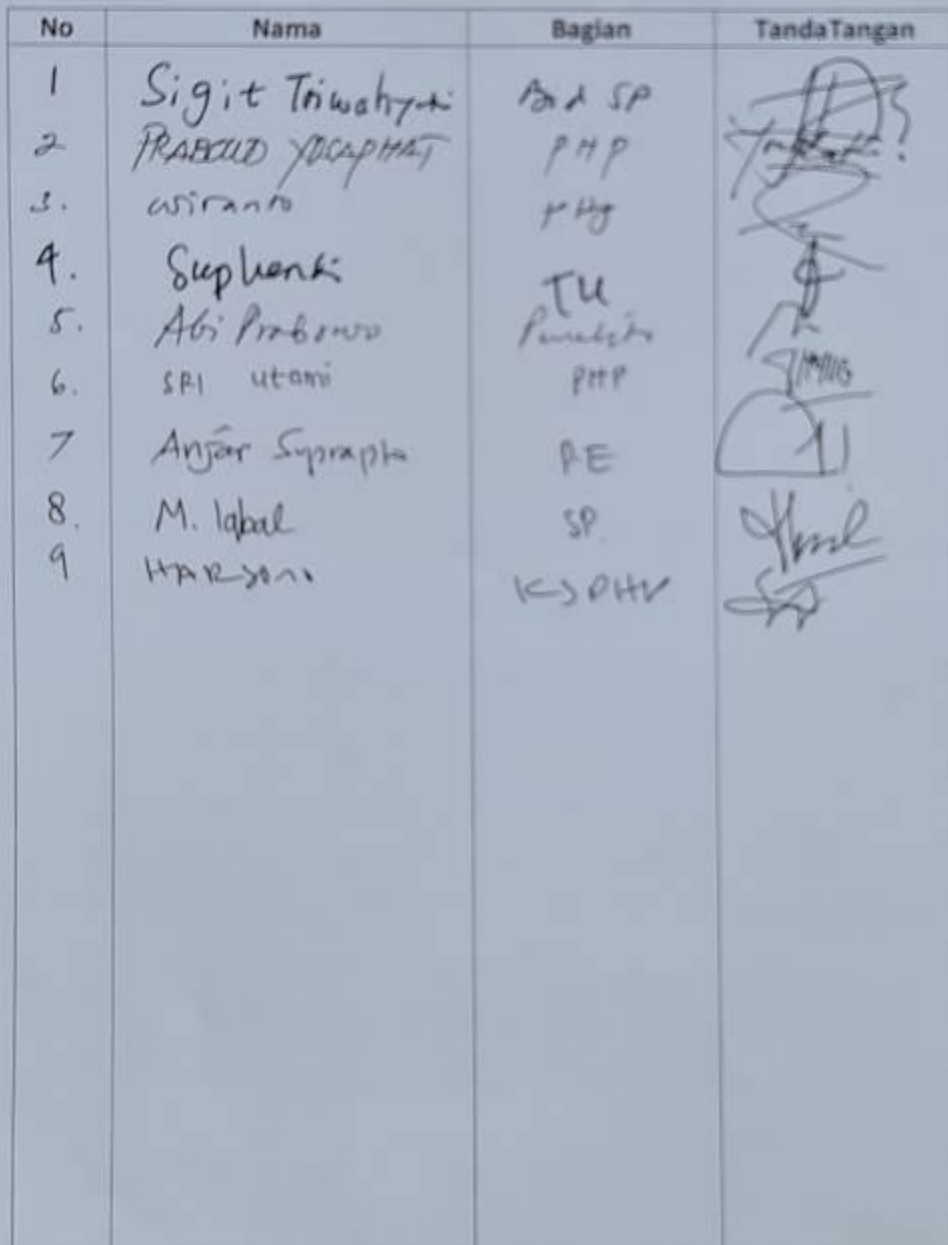 No Nama Bagian TandaTangan
1 Sigit Triwahyuti Bid SP
2 PRABOWO YOCAPHAT PHP
3. wiranto
4. Suphenti TU
5. Abi Prabowo
6. SRI utami PHP
7 Anjar Suprapto RE
8. M. Iqbal SP
9 HARyono